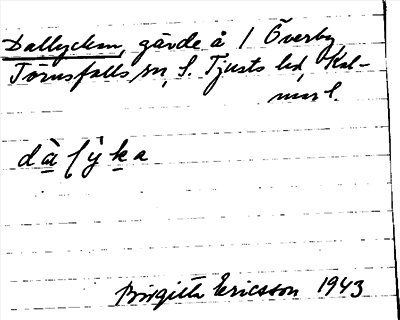 Dallyckan, gärde å 1 Överby
Törnsfalls sn, S. Tjusts hd, Kal-
mar l.
dàlỳka
Birgitta Ericsson 1943